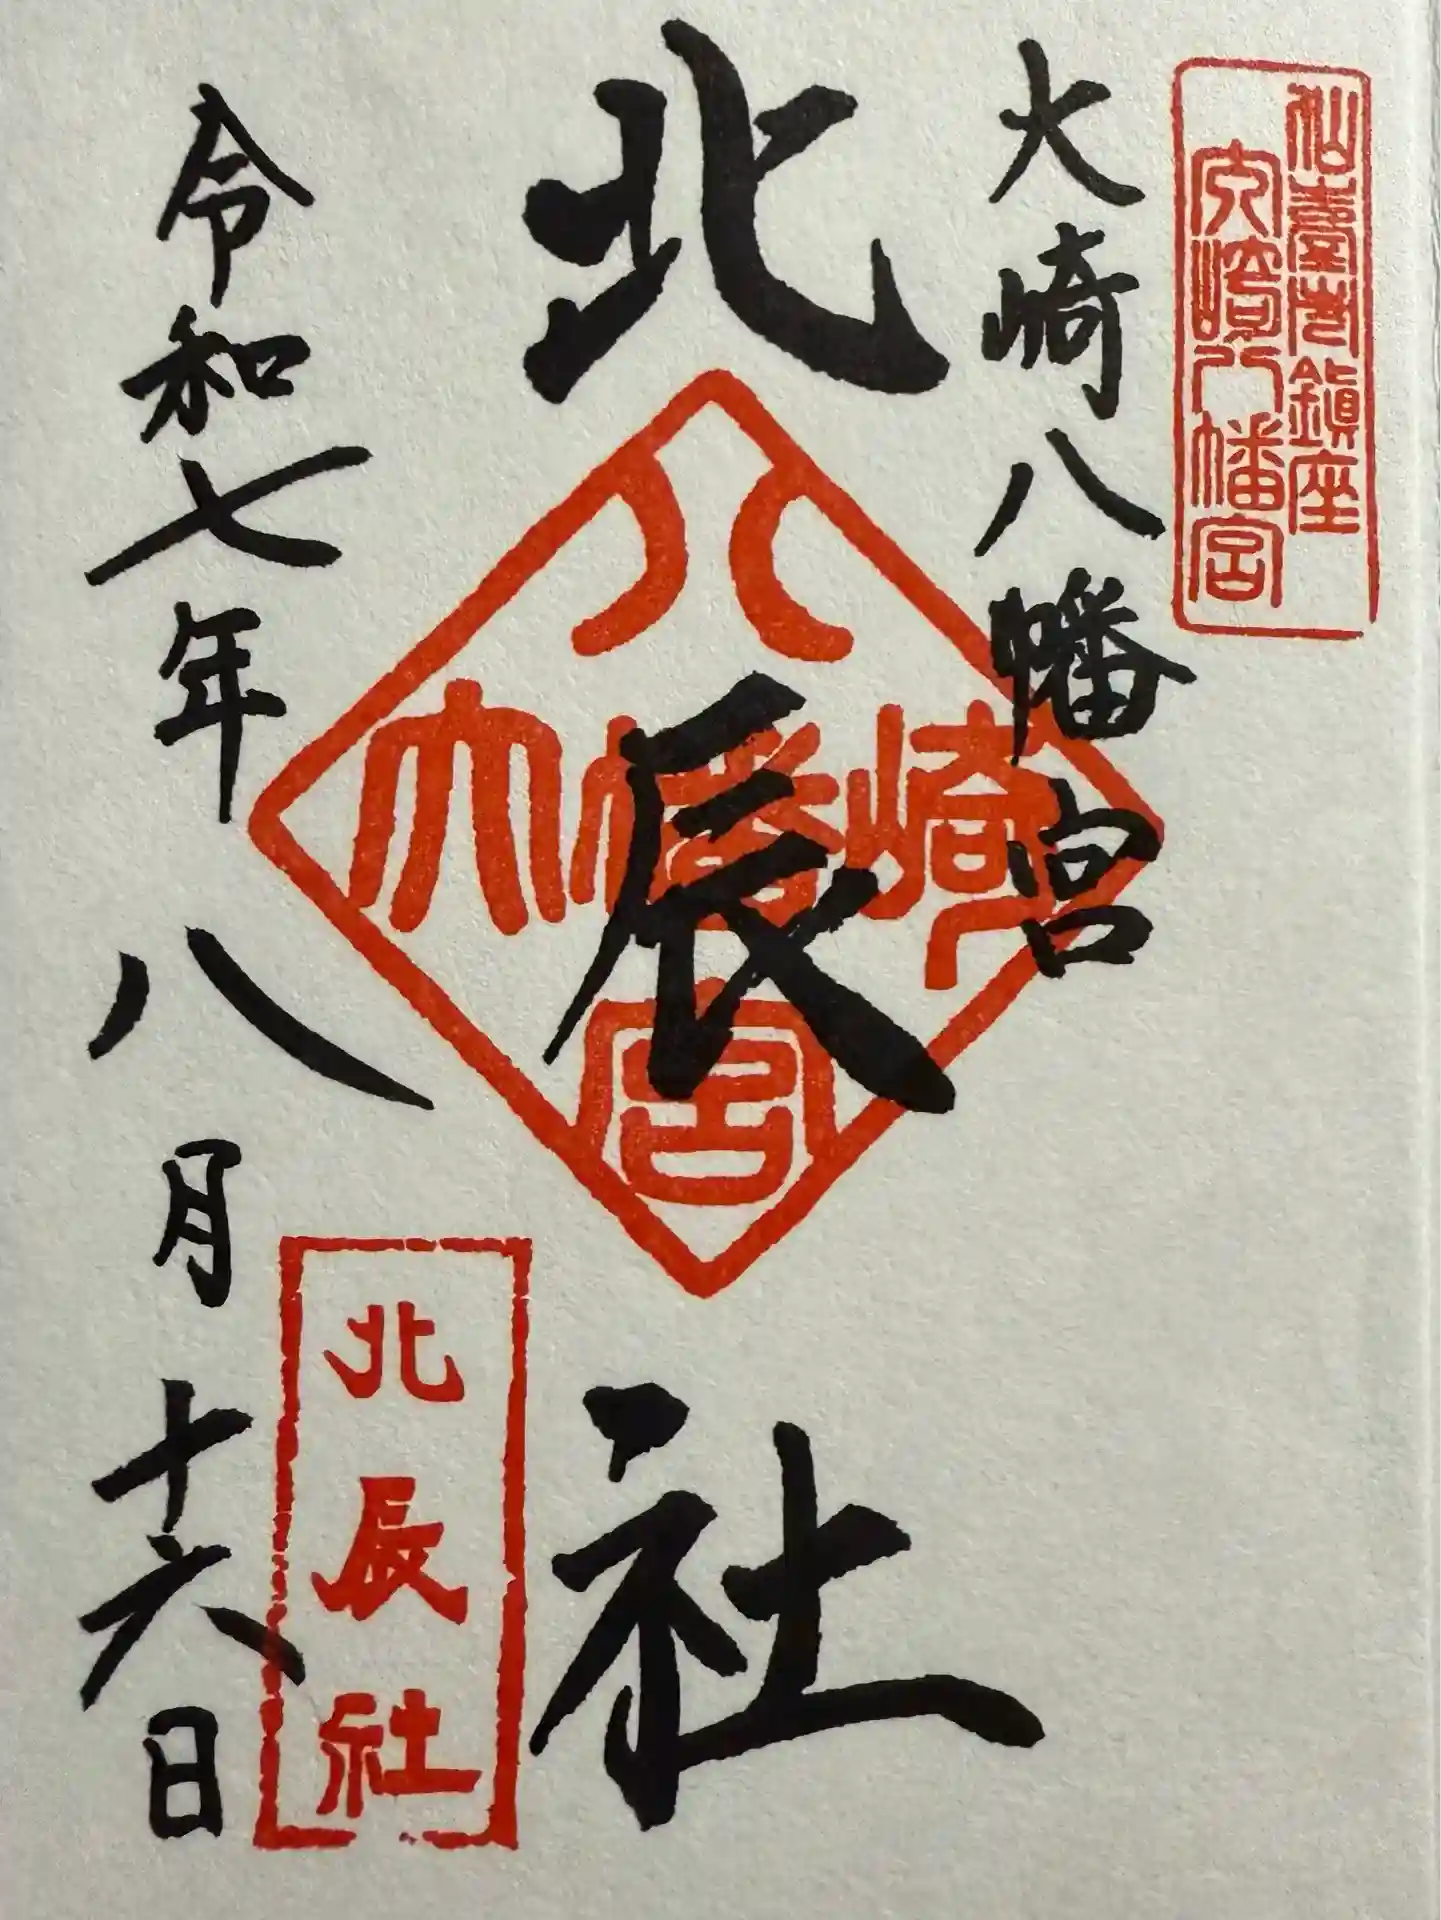 仙臺市鎮座
大崎八幡宮
大崎八幡宮
北辰社
八
大幡崎
宮
北辰社
令和七年八月十六日